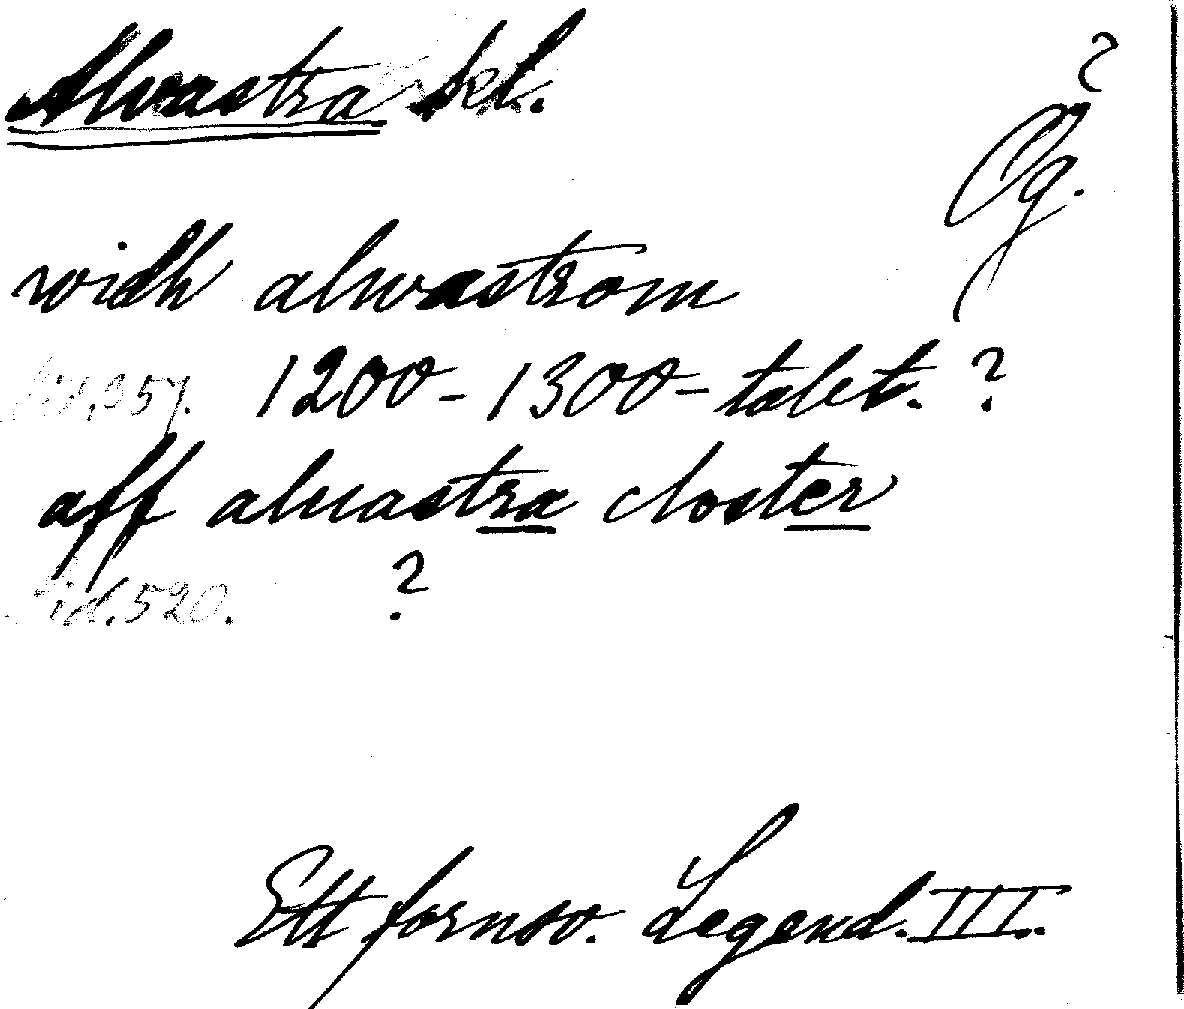 Alvastra kl.
?
Ög.
widh alwastrom
sid. 357. 1200-1300-talet. ?
aff aluastra closter
sid. 520. ?
Ett fornsv. Legend. III.